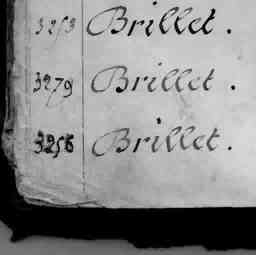 3253 Brillet.
3279 Brillet.
3256 Brillet.